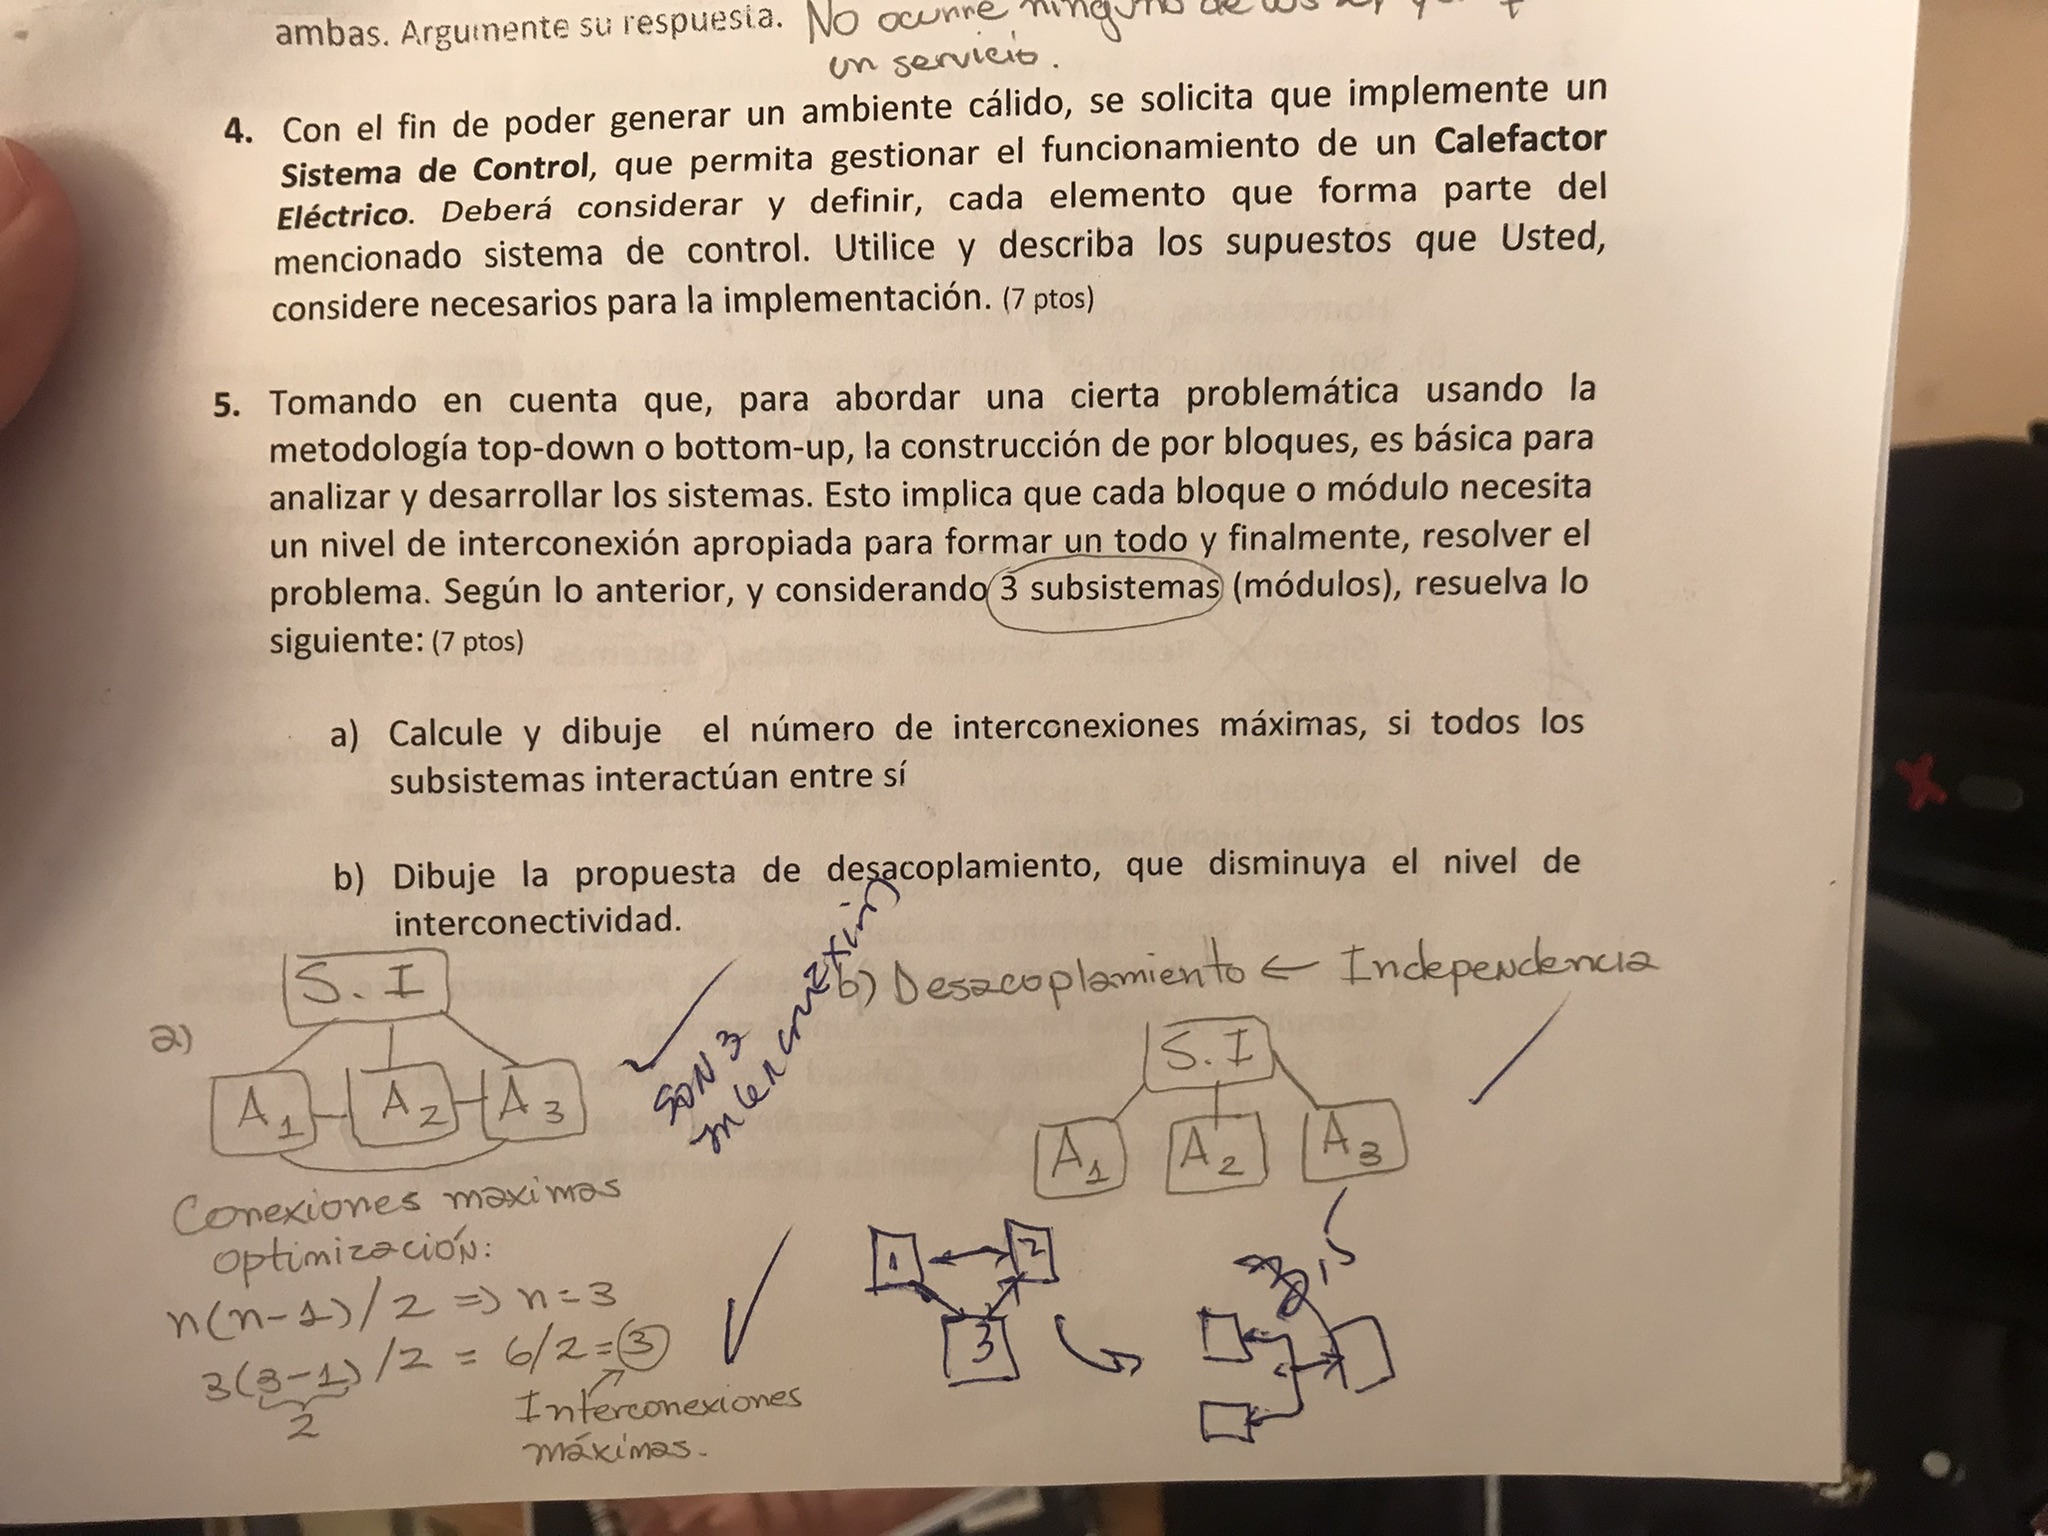 ambas. Argumente su respuesta. No ocurre ninguno de los
un servicio.
4. Con el fin de poder generar un ambiente cálido, se solicita que implemente un
Sistema de Control, que permita gestionar el funcionamiento de un Calefactor
Eléctrico. Deberá considerar y definir, cada elemento que forma parte del
mencionado sistema de control. Utilice y describa los supuestos que Usted,
considere necesarios para la implementación. (7 ptos)
5. Tomando en cuenta que, para abordar una cierta problemática usando la
metodología top-down o bottom-up, la construcción de por bloques, es básica para
analizar y desarrollar los sistemas. Esto implica que cada bloque o módulo necesita
un nivel de interconexión apropiada para formar un todo y finalmente, resolver el
problema. Según lo anterior, y considerando 3 subsistemas (módulos), resuelva lo
siguiente: (7 ptos)
a) Calcule y dibuje el número de interconexiones máximas, si todos los
subsistemas interactúan entre sí
b) Dibuje la propuesta de desacoplamiento, que disminuya el nivel de
interconectividad.
a)
S. I
A1 A2 A3
SON 3
b) Desacoplamiento ← Independencia
S. I
A1 A2 A3
Conexiones maximas
optimización:
n(n-1)/2 => n=3
3(3-1)/2 = 6/2=3
2
Interconexiones
máximas.
1 2
3